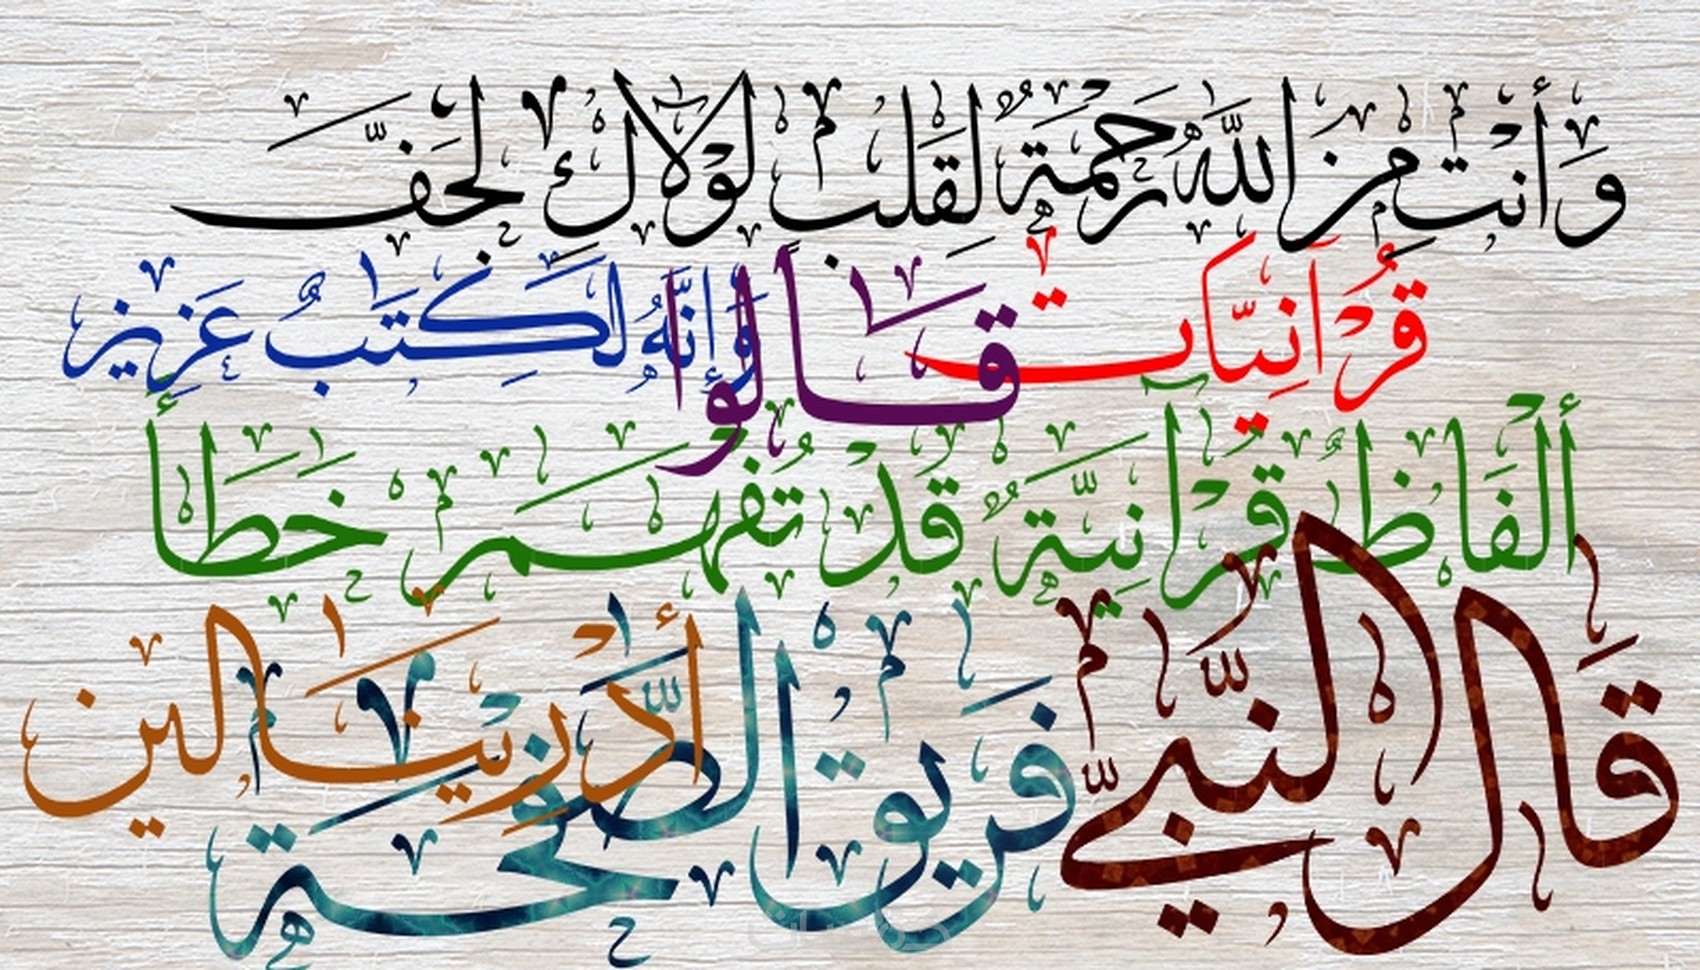 وَأَنْتِ مِنَ اللَّهِ رَحْمَةٌ لِقَلْبٍ لَوْلَاكِ لَجَفَّ
قُرْآنِيَّات
قَالُوا
وَإِنَّهُ لَكِتَبٌ عَزِيز
أَلْفَاظٌ قُرْآنِيَّةٌ قَدْ تُفْهَم خَطَأً
قَالَ النَّبِيّ
فَرِيقُ الصَّفْحَة